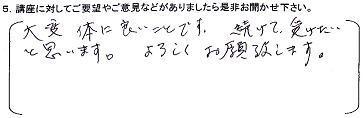 5. 講座に対してご要望やご意見などがありましたら是非お聞かせ下さい。
大変 体に良いことです、続けて、受けたい
と思います。 よろしく お願致します。